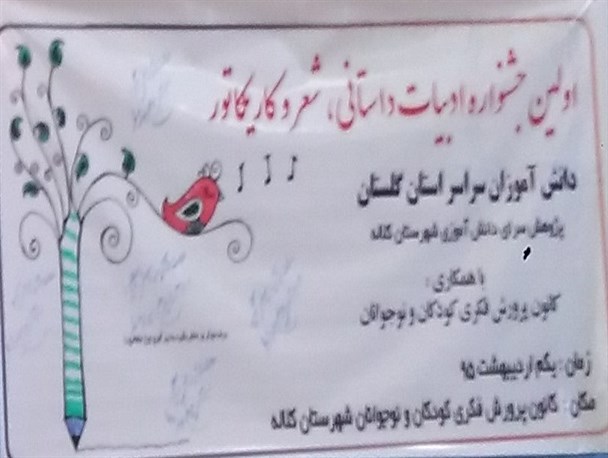 اولین جشنواره ادبیات داستانی، شعر و کاریکاتور
دانش آموزان سراسر استان گلستان
پژوهش سرای دانش آموزی شهرستان کلاله
با همکاری :
کانون پرورش فکری کودکان و نوجوانان
زمان : یکم اردیبهشت ۹۵
مکان : کانون پرورش فکری کودکان و نوجوانان شهرستان کلاله